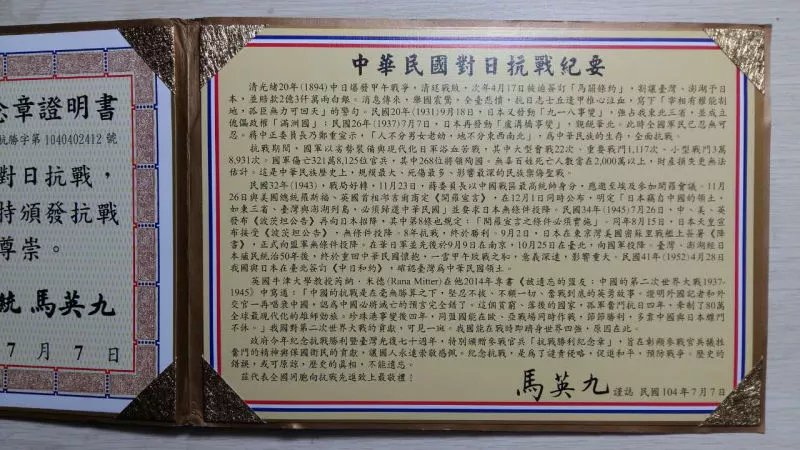 念章證明書
抗勝字第 1040402412 號
對日抗戰，
特頒發抗戰
尊崇。
統 馬英九
7 月 7 日
中華民國對日抗戰紀要
清光緒20年(1894)中日爆發甲午戰爭，清廷戰敗，次年4月17日被迫簽訂「馬關條約」，割讓臺灣、澎湖予日
本，並賠款2億3仟萬兩白銀。消息傳來，舉國震驚，全臺悲憤，抗日志士丘逢甲椎心泣血，寫下「宰相有權能割
地，孤臣無力可回天」的警句。民國20年(1931)9月18日，日本又發動「九一八事變」，強占我東北三省，並成立
傀儡政權「滿洲國」；民國26年(1937)7月7日，日本再發動「盧溝橋事變」，鯨吞華北。此時全國軍民已忍無可
忍。蔣中正委員長乃鄭重宣示，「人不分男女老幼，地不分東西南北」，為中華民族的生存，全面抗戰。
抗戰期間，國軍以劣勢裝備與現代化日軍浴血苦戰，其中大型會戰22次、重要戰鬥1,117次、小型戰鬥3萬
8,931次。國軍傷亡321萬8,125位官兵，其中268位將領殉國。無辜百姓死亡人數當在2,000萬以上，財產損失更無法
估計。這是中華民族歷史上，規模最大、死傷最多、影響最深的民族禦侮聖戰。
民國32年(1943)，戰局好轉，11月23日，蔣委員長以中國戰區最高統帥身分，應邀至埃及參加開羅會議。11月
26日與美國總統羅斯福、英國首相邱吉爾商定《開羅宣言》，在12月1日同時公布，明定「日本竊自中國的領土，
如東三省、臺灣與澎湖列島，必須歸還中華民國」並要求日本無條件投降。民國34年(1945)7月26日，中、美、英
發布《波茨坦公告》再向日本招降，其中第8條也規定：「開羅宣言之條件必須實施」。同年8月15日，日本天皇宣
布接受《波茨坦公告》，無條件投降。8年抗戰，終於勝利。9月2日，日本在東京灣美國密蘇里戰艦上簽署《降
書》，正式向盟軍無條件投降。在華日軍並先後於9月9日在南京，10月25日在臺北，向國軍投降。臺灣、澎湖經日
本殖民統治50年後，終於重回中華民國懷抱，一雪甲午戰敗之恥，意義深遠，影響重大。民國41年(1952)4月28日
我國與日本在臺北簽訂《中日和約》，確認臺灣為中華民國領土。
英國牛津大學教授芮納．米德(Rana Mitter)在他2014年專書《被遺忘的盟友：中國的第二次世界大戰1937-
1945》中寫道：「中國的抗戰是在毫無勝算之下，堅忍不拔、不顧一切、奮戰到底的英勇故事。證明外國記者和外
交官一再唱衰中國，認為中國必將滅亡的預言完全錯了。這個貧窮、落後的國家，孤軍奮鬥抗日四年，牽制了80萬
全球最現代化的雄師勁旅。珍珠港事變後四年，同盟國能在歐、亞戰場同時作戰，節節勝利，多靠中國與日本纏鬥
不休。」我國對第二次世界大戰的貢獻，可見一斑。我國能在戰時即躋身世界四強，原因在此。
政府今年紀念抗戰勝利暨臺灣光復七十週年，特別頒贈參戰官兵「抗戰勝利紀念章」，旨在彰顯參戰官兵犧牲
奮鬥的精神與保國衛民的貢獻，讓國人永遠崇敬感佩。紀念抗戰，是為了譴責侵略，促進和平，預防戰爭。歷史的
錯誤，或可原諒，歷史的真相，不能遺忘。
茲代表全國同胞向抗戰先進致上最敬禮！
馬英九 謹誌 民國104年7月7日